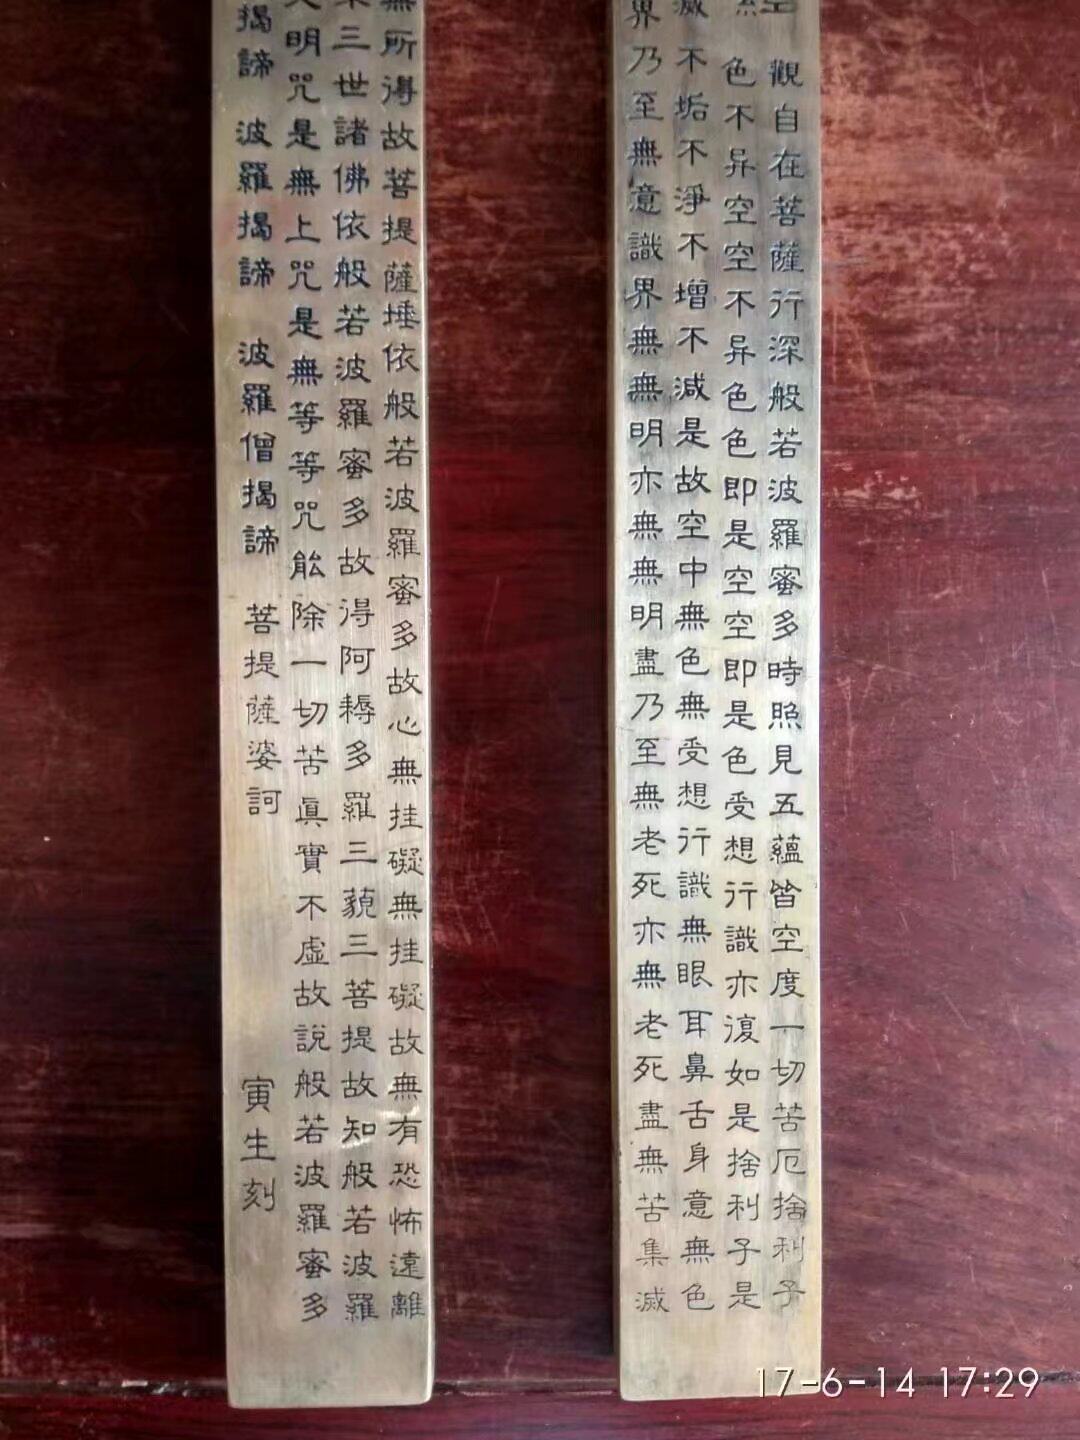 觀自在菩薩行深般若波羅蜜多時照見五蘊皆空度一切苦厄捨利子
色不异空空不异色色即是空空即是色受想行識亦復如是捨利子是
滅不垢不淨不增不減是故空中無色無受想行識無眼耳鼻舌身意無色
界乃至無意識界無無明亦無無明盡乃至無老死亦無老死盡無苦集滅
無所得故菩提薩埵依般若波羅蜜多故心無挂礙無挂礙故無有恐怖遠離
三世諸佛依般若波羅蜜多故得阿耨多羅三藐三菩提故知般若波羅
明咒是無上咒是無等等咒能除一切苦眞實不虛故說般若波羅蜜多
揭諦 波羅揭諦 波羅僧揭諦 菩提薩婆訶
寅生刻
17-6-14 17:29